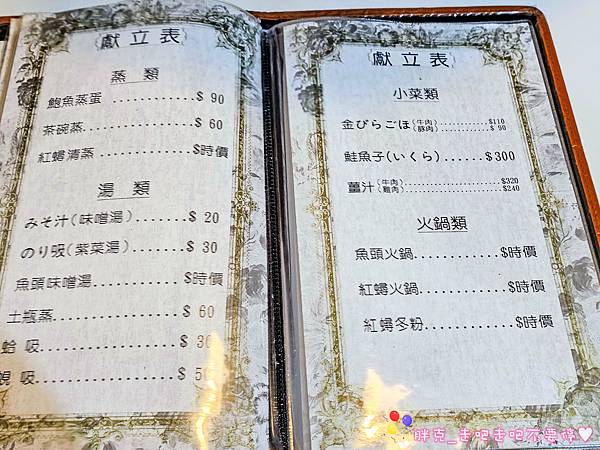 獻立表
蒸類
鮑魚蒸蛋............$ 90
茶碗蒸..............$ 60
紅蟳清蒸............$時價
湯類
みそ汁(味噌湯).......$ 20
のり吸(紫菜湯).......$ 30
魚頭味噌湯..........$時價
土瓶蒸..............$ 60
蛤 吸...............$ 30
蜆 吸...............$
獻立表
小菜類
金ぴらごほ(牛肉)............$110
(豚肉)............$ 90
鮭魚子(いくら)......$300
薑汁(牛肉)............$320
(雞肉)............$240
火鍋類
魚頭火鍋............$時價
紅蟳火鍋............$時價
紅蟳冬粉............$時價
胖克_走吧走吧不要停